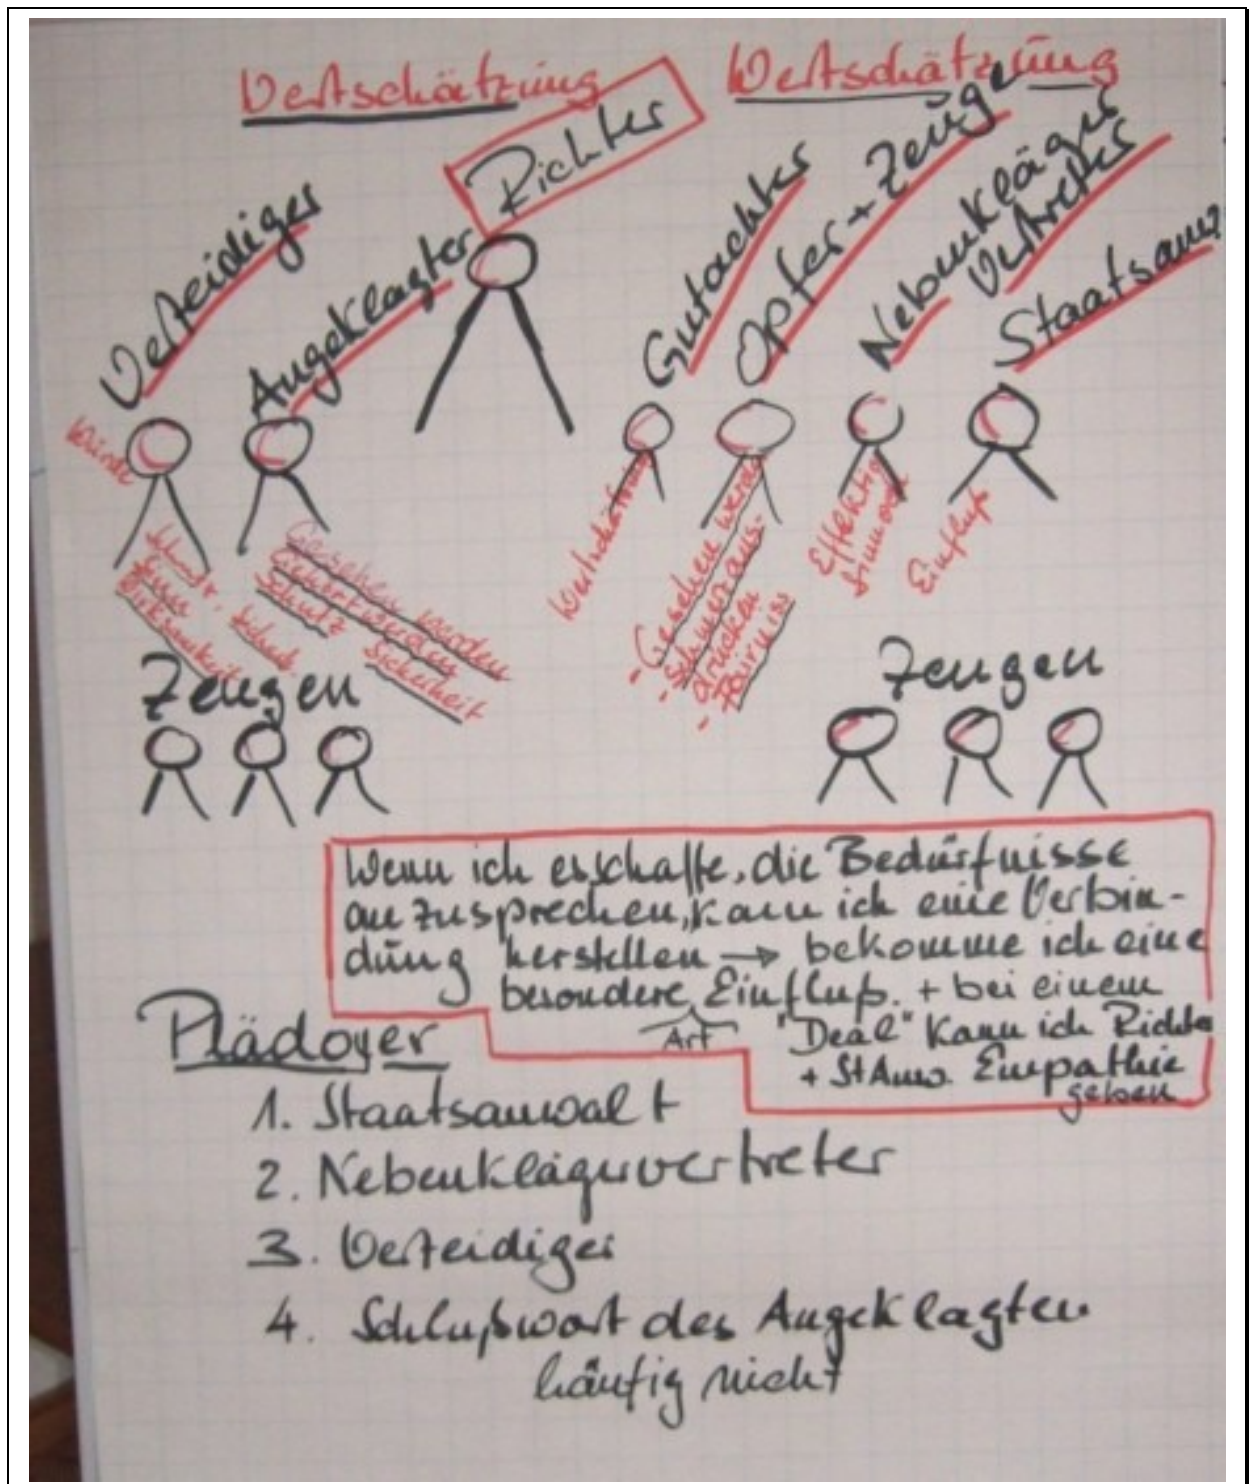 Wertschätzung Wertschätzung
Richter
Verteidiger
Angeklagter
Gutachter
Opfer + Zeuge
Nebenkläger
Vertreter
Staatsanw
Würde
Sinn
Wirksamkeit
Gesehen werden
Gehört werden
Schutz Sicherheit
Wertschätzung
- Gesehen werden
- Schmerz aus-
drücken
- Fairniss
Effektiv
Sinnvoll
Einfluß
Zeugen
Zeugen
Wenn ich es schaffe, die Bedürfnisse
anzusprechen, kann ich eine Verbin-
dung herstellen → bekomme ich eine
besondere Einfluß. + bei einem
Art "Deal" kann ich Richter
+ StAnw. Empathie
geben
Plädoyer
1. Staatsanwalt
2. Nebenklägervertreter
3. Verteidiger
4. Schlußwort des Angeklagten
häufig nicht